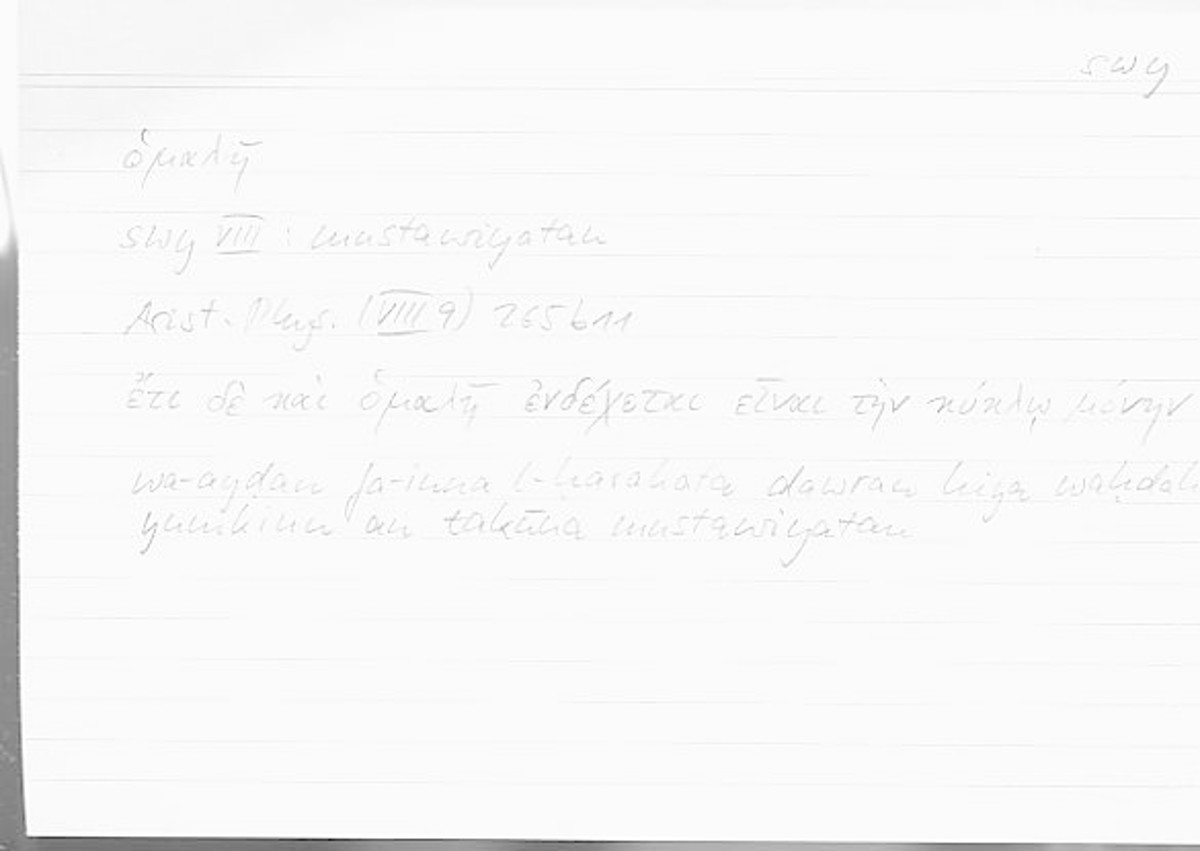 swy
ὁμαλῆ
swy VIII : mustawiyatan
Arist. Phys. (VIII 9) 265b11
ἔτι δὲ καὶ ὁμαλῆ ἐνδέχεται εἶναι τὴν κύκλῳ μόνην
wa-ayḍan fa-inna l-ḥarakata dawran hiya waḥdah
yumkinu an takūna mustawiyatan